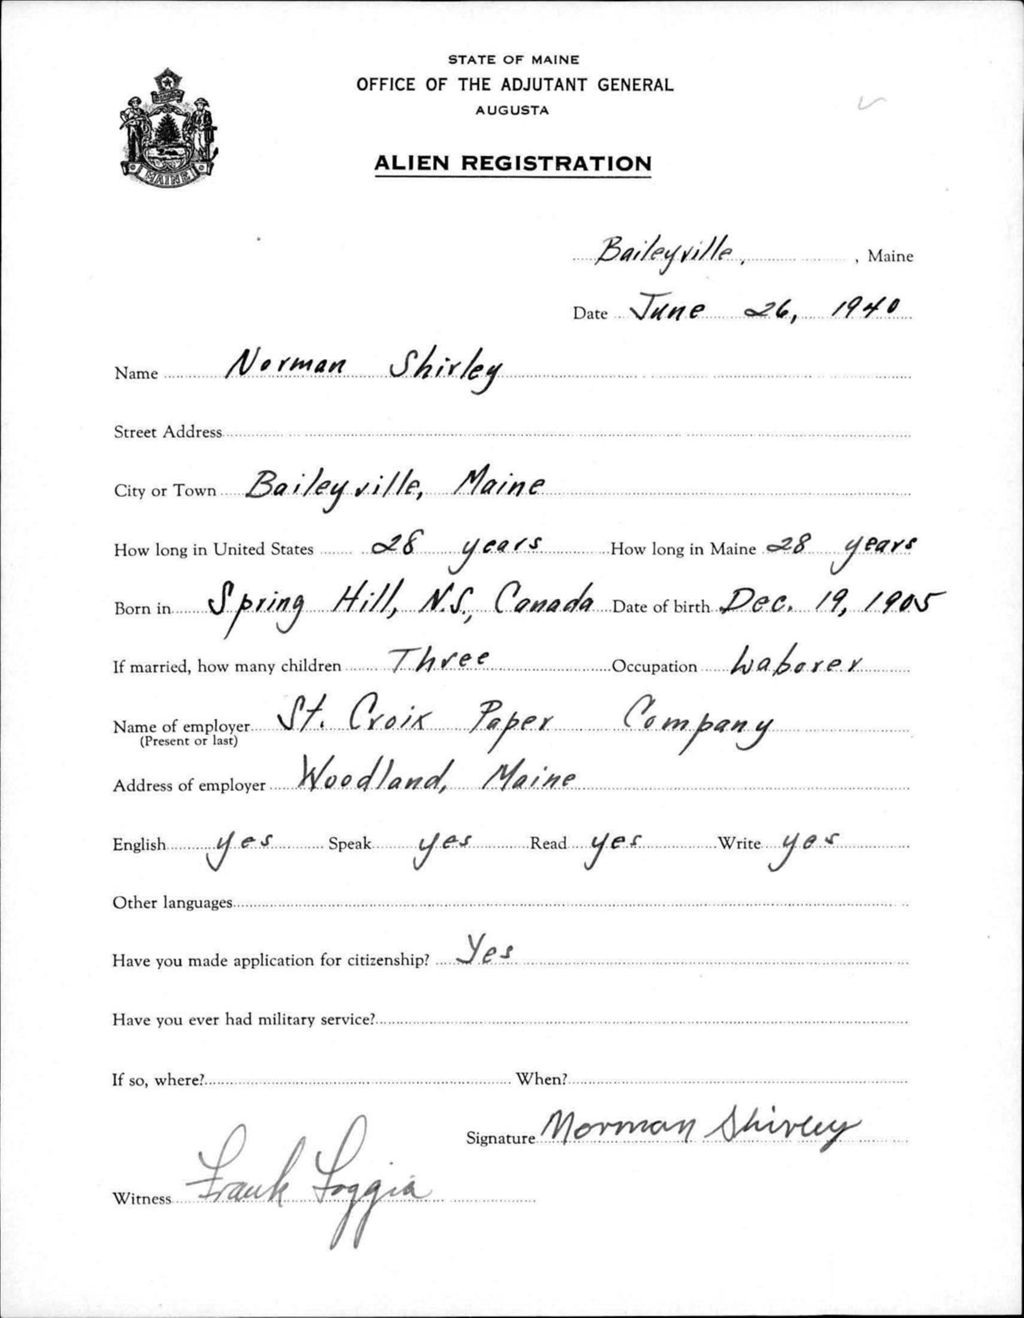 STATE OF MAINE
OFFICE OF THE ADJUTANT GENERAL
AUGUSTA
MAINE
ALIEN REGISTRATION
Baileyville, , Maine
Date June 26, 1940
Name Norman Shirley
Street Address
City or Town Baileyville, Maine
How long in United States 28 years How long in Maine 28 years
Born in Spring Hill, N.S., Canada Date of birth Dec. 19, 1905
If married, how many children Three Occupation Laborer
Name of employer St. Croix Paper Company
(Present or last)
Address of employer Woodland, Maine
English yes Speak yes Read yes Write yes
Other languages
Have you made application for citizenship? Yes
Have you ever had military service?
If so, where? When?
Signature Norman Shirley
Witness Frank Loggia